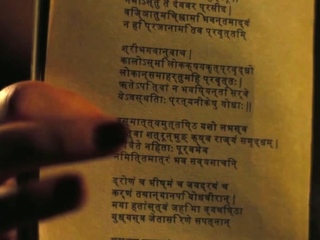 नमोऽस्तु ते देववर प्रसीद
विज्ञातुमिच्छामि भवन्तमाद्यं
न हि प्रजानामि तव प्रवृत्तिम्
श्रीभगवानुवाच ।
कालोऽस्मि लोकक्षयकृत्प्रवृद्धो
लोकान्समाहर्तुमिह प्रवृत्तः ।
ऋतेऽपि त्वा न भविष्यन्ति सर्वे
येऽवस्थिताः प्रत्यनीकेषु योधाः ॥
यशो लभस्व
शत्रून् भुङ्क्ष्व राज्यं समृद्धम् ।
निहताः पूर्वमेव
निमित्तमात्रं भव सव्यसाचिन्
द्रोणं च भीष्मं च जयद्रथं च
कर्णं तथान्यानपि योधवीरान् ।
मया हतांस्त्वं जहि मा व्यथिष्ठा
युध्यस्व जेतासि रणे सपत्नान्